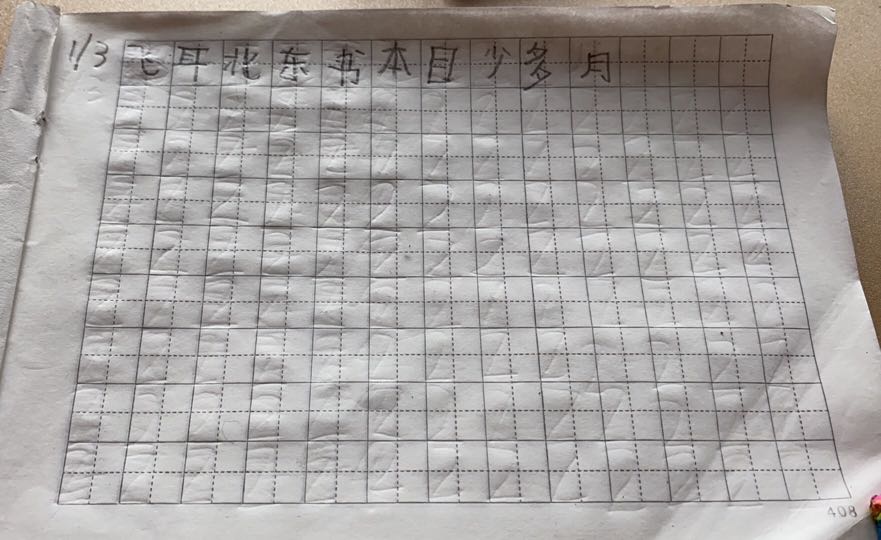 1/3 飞耳北东书本目少多月
408